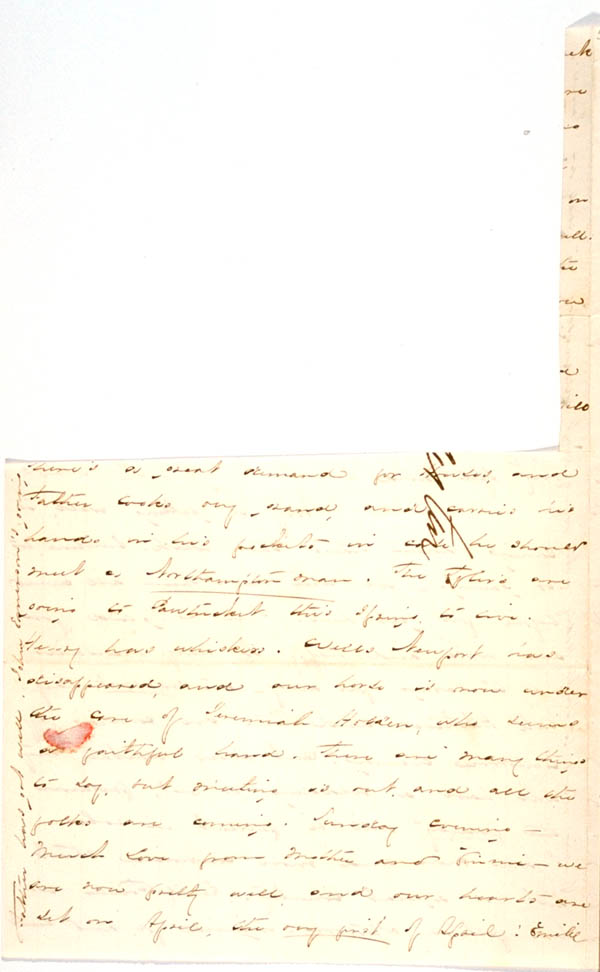 there's a great demand for houses, and
Father looks very grand, and carries his
hands in his pockets in case he should
meet a Northampton man. The Tylers are
going to Pawtucket this Spring, to live.
Jerry has whiskers. Wells Newport has
disappeared, and our horse is now under
the care of Jeremiah Holden, who seems
a faithful hand. There are many things
to say, but meeting is out, and all the
folks are coming. Sunday evening –
Much love from Mother and Vinnie – we
are now pretty well, and our hearts are
set on April, the very first of April! Emilie
has got well.
on